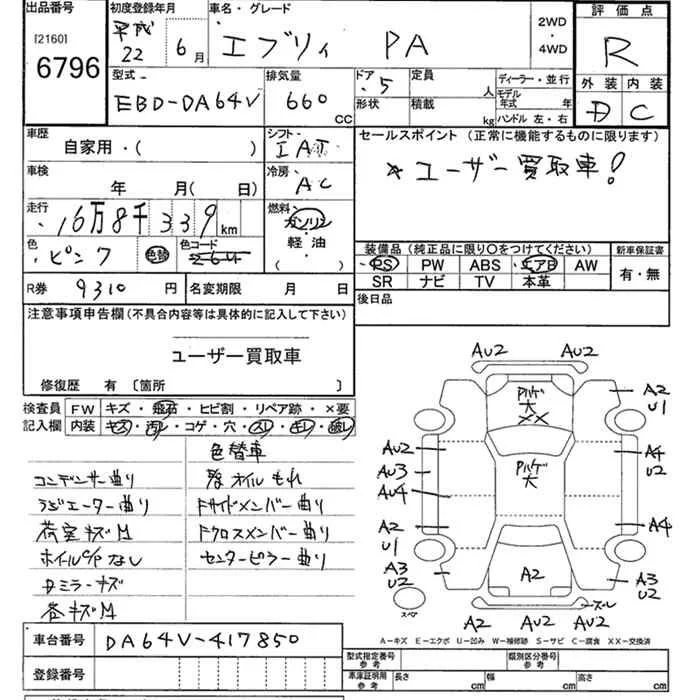 出品番号 初度登録年月 車名・グレード 2WD・4WD 評価点
[2160] 平成
6796 22 6月 エブリィ PA R
型式 排気量 ドア 定員 ディーラー・並行 外装 内装
EBD-DA64V 660 CC ・5 人 モデル年式 年 D C
形状 積載 kg ハンドル 左・右
車歴 シフト セールスポイント (正常に機能するものに限ります)
自家用・( ) IAT
車検 冷房 ユーザー買取車!
年 月( 日) AC
走行 燃料
16万8千339km ガソリン
軽油
( )
色 色替 色コード 装備品(純正品に限り○をつけてください) 新車保証書
ピンク Z6U PS PW ABS エアB AW 有・無
SR ナビ TV 本革
R券 9310円 名変期限 月 日 後日品
注意事項申告欄(不具合内容等は具体的に記入して下さい)
ユーザー買取車
修復歴 有〔箇所 〕
検査員 FW キズ・飛石・ヒビ割・リペア跡・×要
記入欄 内装 キズ・汚レ・コゲ・穴・スレ・キレ・破レ
色替車
コンデンサー曲り
ラジエーター曲り ドサイドメンバー曲り
荷室キズM ドクロスメンバー曲り
ホイルC/Pなし センターピラー曲り
Dミラーキズ
各キズM
車台番号 DA64V-417850
登録番号
AU2 AU2
Pルーゲ 大 XX
A2 U1
AU2 A4 U2
AU3 Pルーゲ 大
AU4
A2 U1 A4
A3 U2 A2 A3 U2
スペア スレ
A2 AU2 AU2
A-キズ E-エクボ U-凹み W-補修跡 S-サビ C-腐食 XX-交換済
型式指定番号 参考 類別区分番号 参考
車庫証明用 参考 長さ cm 幅 cm 高さ cm